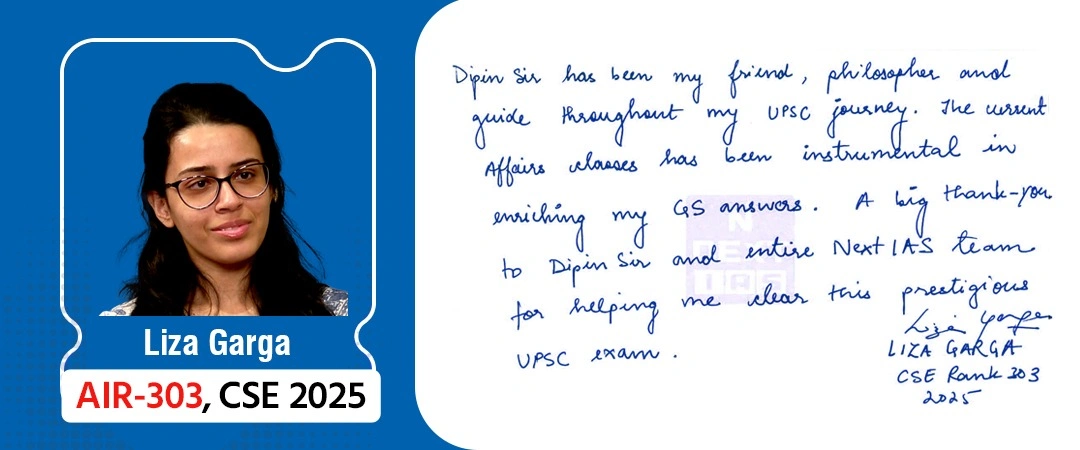 Liza Garga
AIR-303, CSE 2025
Dipin Sir has been my friend, philosopher and
guide throughout my UPSC journey. The current
Affairs classes has been instrumental in
enriching my GS answers. A big thank-you
to Dipin Sir and entire Next IAS team
for helping me clear this prestigious
UPSC exam.
Liza Garga
LIZA GARGA
CSE Rank 303
2025
N
NEXT
IAS